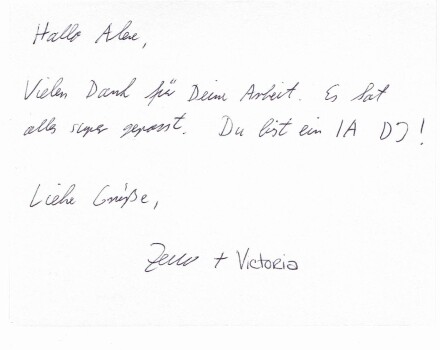 Hallo Alex,
Vielen Dank für Deine Arbeit. Es hat
alles super gepasst. Du bist ein 1A DJ!
Liebe Grüße,
+ Victoria